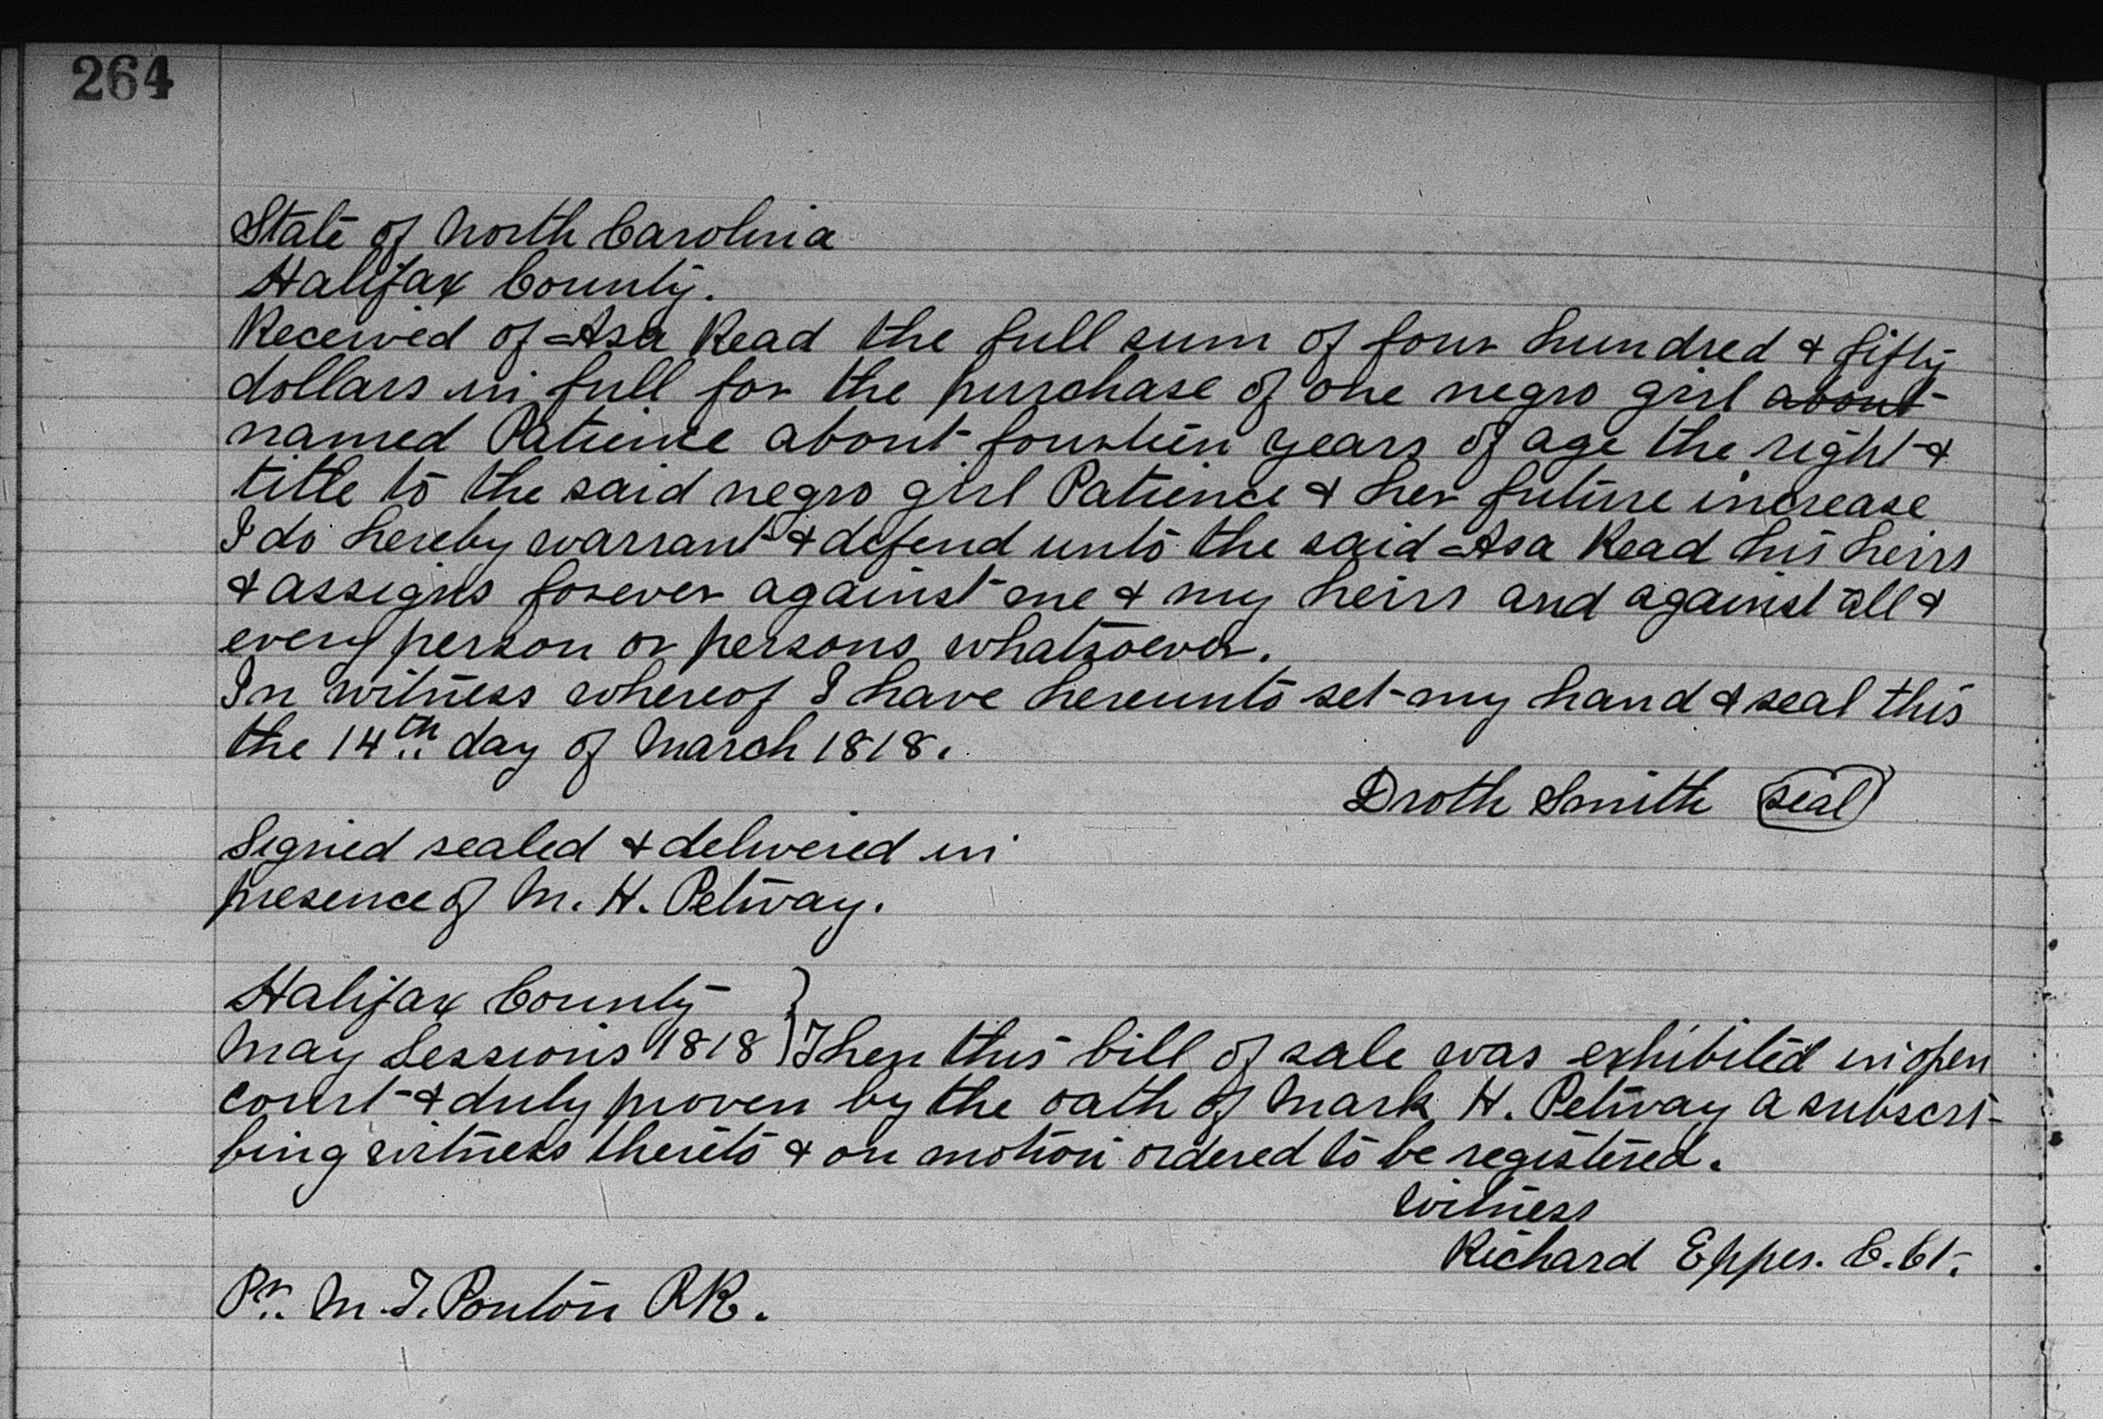 264
State of North Carolina
Halifax County.
Received of Asa Read the full sum of four hundred & fifty
dollars in full for the purchase of one negro girl about
named Patience about fourteen years of age the right &
title to the said negro girl Patience & her future increase
I do hereby warrant & defend unto the said Asa Read his heirs
& assigns forever against me & my heirs and against all &
every person or persons whatsoever.
In witness whereof I have hereunto set my hand & seal this
the 14th day of March 1818.
Droth Smith seal
Signed sealed & delivered in
presence of M. H. Petway.
Halifax County
May Sessions 1818 } Then this bill of sale was exhibited in open
court & duly proven by the oath of Mark H. Petway a subscri-
bing witness thereto & on motion ordered to be registered.
Witness
Richard Eppes. C. Ct.
Pr. M. T. Ponton P.R.